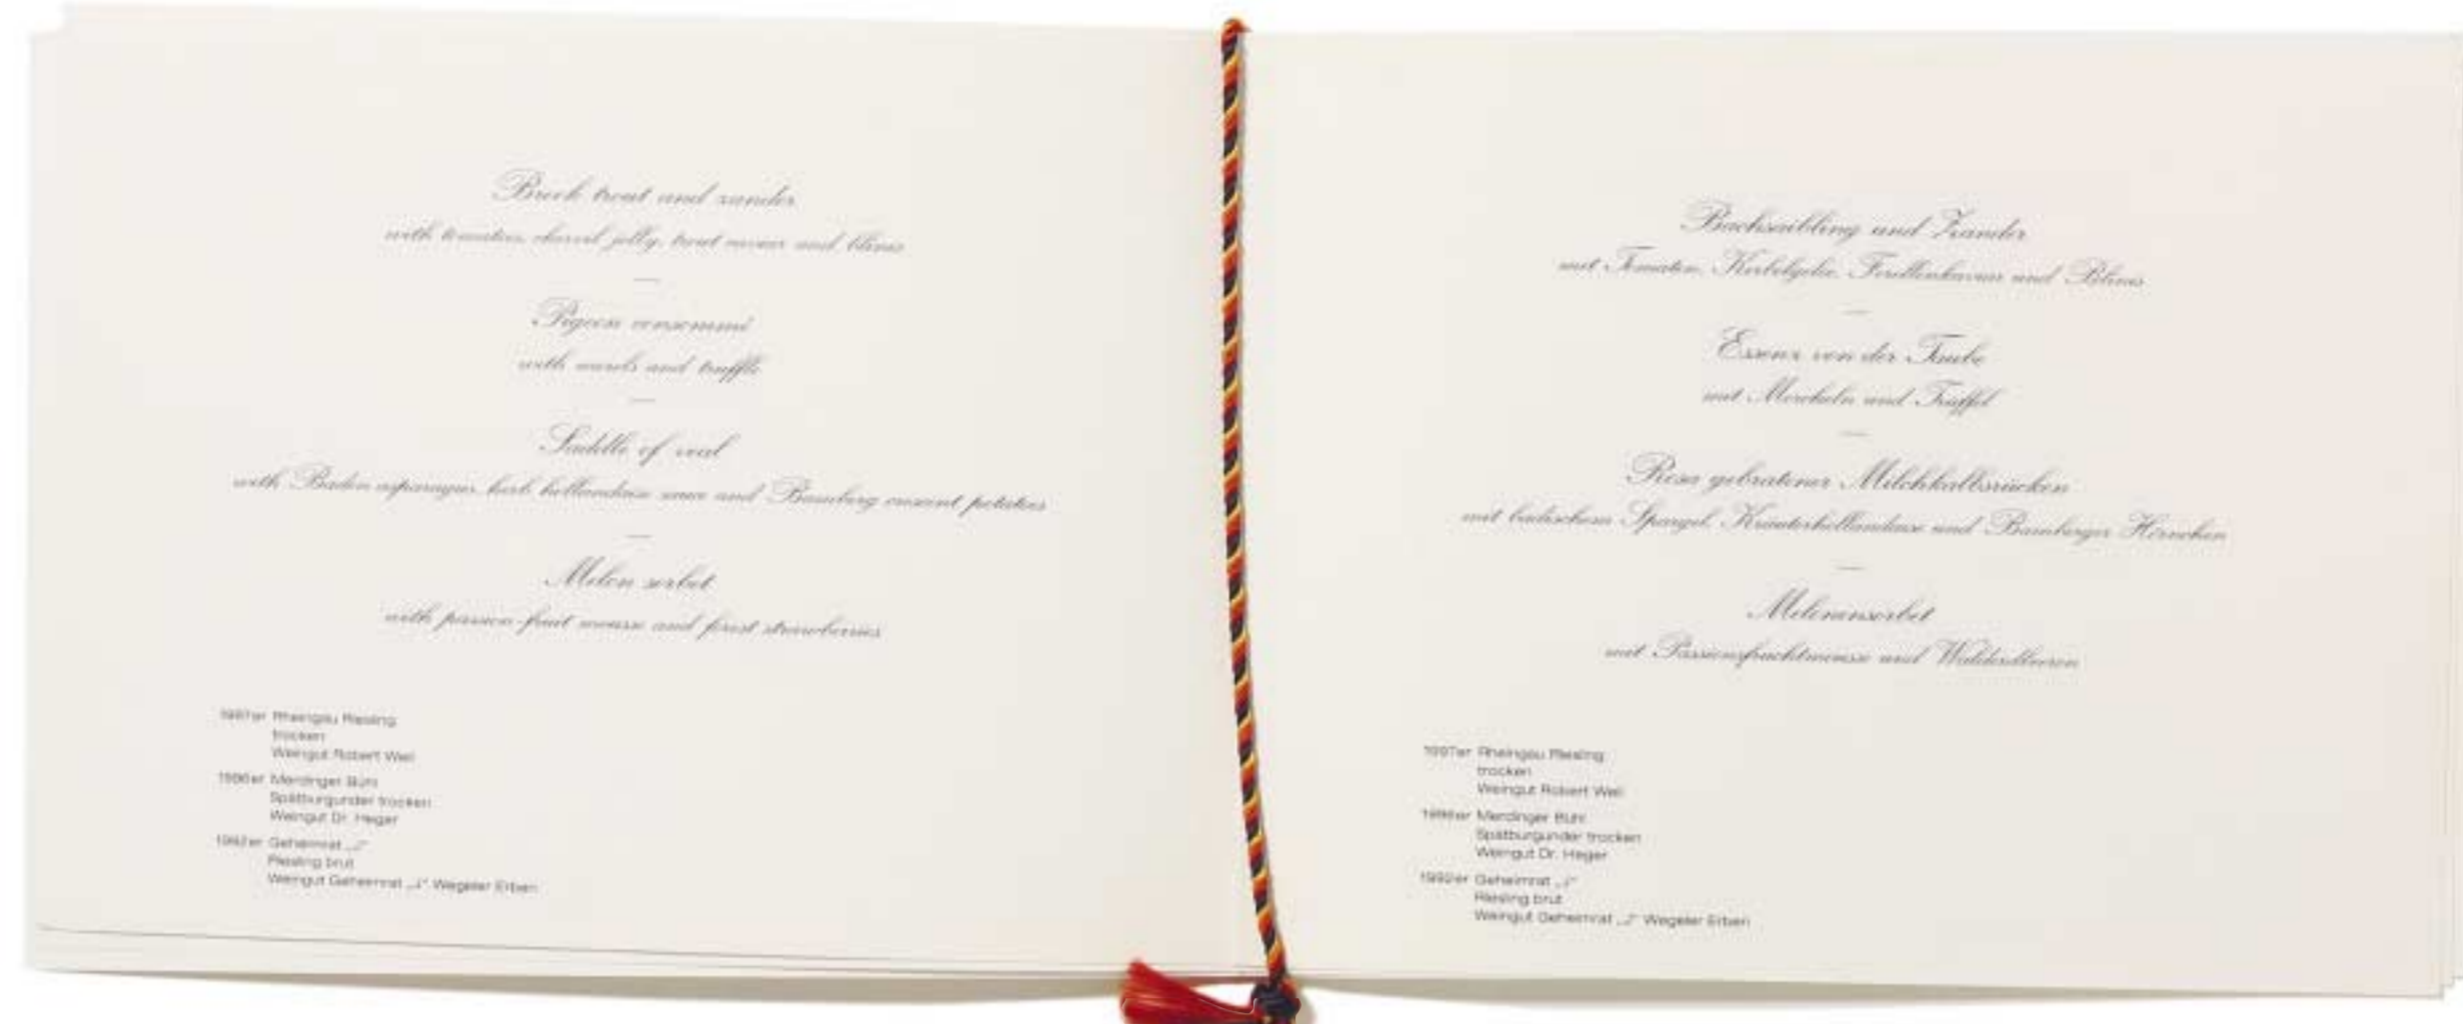 Brook trout and zander
with tomatoes, chervil jelly, trout caviar and blinis
Pigeon consommé
with morels and truffle
Saddle of veal
with Baden asparagus, herb hollandaise sauce and Bamberg crescent potatoes
Melon sorbet
with passion-fruit mousse and forest strawberries
1997er Rheingau Riesling
trocken
Weingut Robert Weil
1996er Merdinger Bühl
Spätburgunder trocken
Weingut Dr. Heger
1992er Geheimrat „J“
Riesling brut
Weingut Geheimrat „J“ Wegeler Erben
Bachsaibling und Zander
mit Tomaten, Kerbelgelee, Forellenkaviar und Blinis
Essenz von der Taube
mit Morcheln und Trüffel
Rosa gebratener Milchkalbsrücken
mit badischem Spargel, Kräuterhollandaise und Bamberger Hörnchen
Melonensorbet
mit Passionsfruchtmousse und Walderdbeeren
1997er Rheingau Riesling
trocken
Weingut Robert Weil
1996er Merdinger Bühl
Spätburgunder trocken
Weingut Dr. Heger
1992er Geheimrat „J“
Riesling brut
Weingut Geheimrat „J“ Wegeler Erben